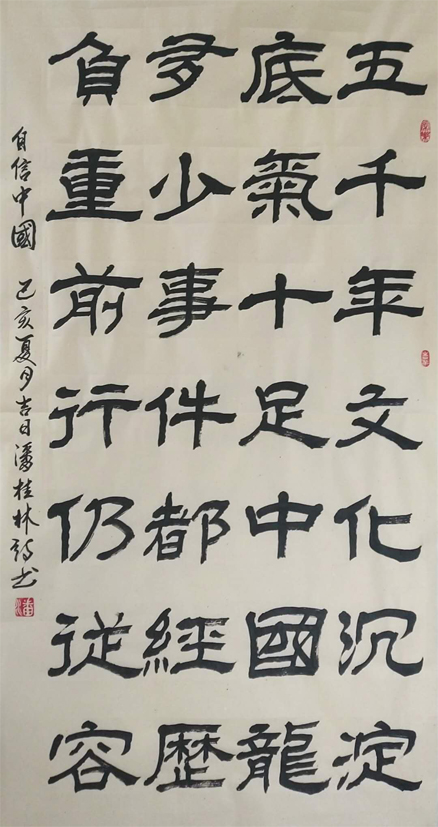 五千年文化沉淀
底氣十足中國龍
多少事件都經歷
負重前行仍從容
自信中國 己亥夏月吉日潘桂林詩书